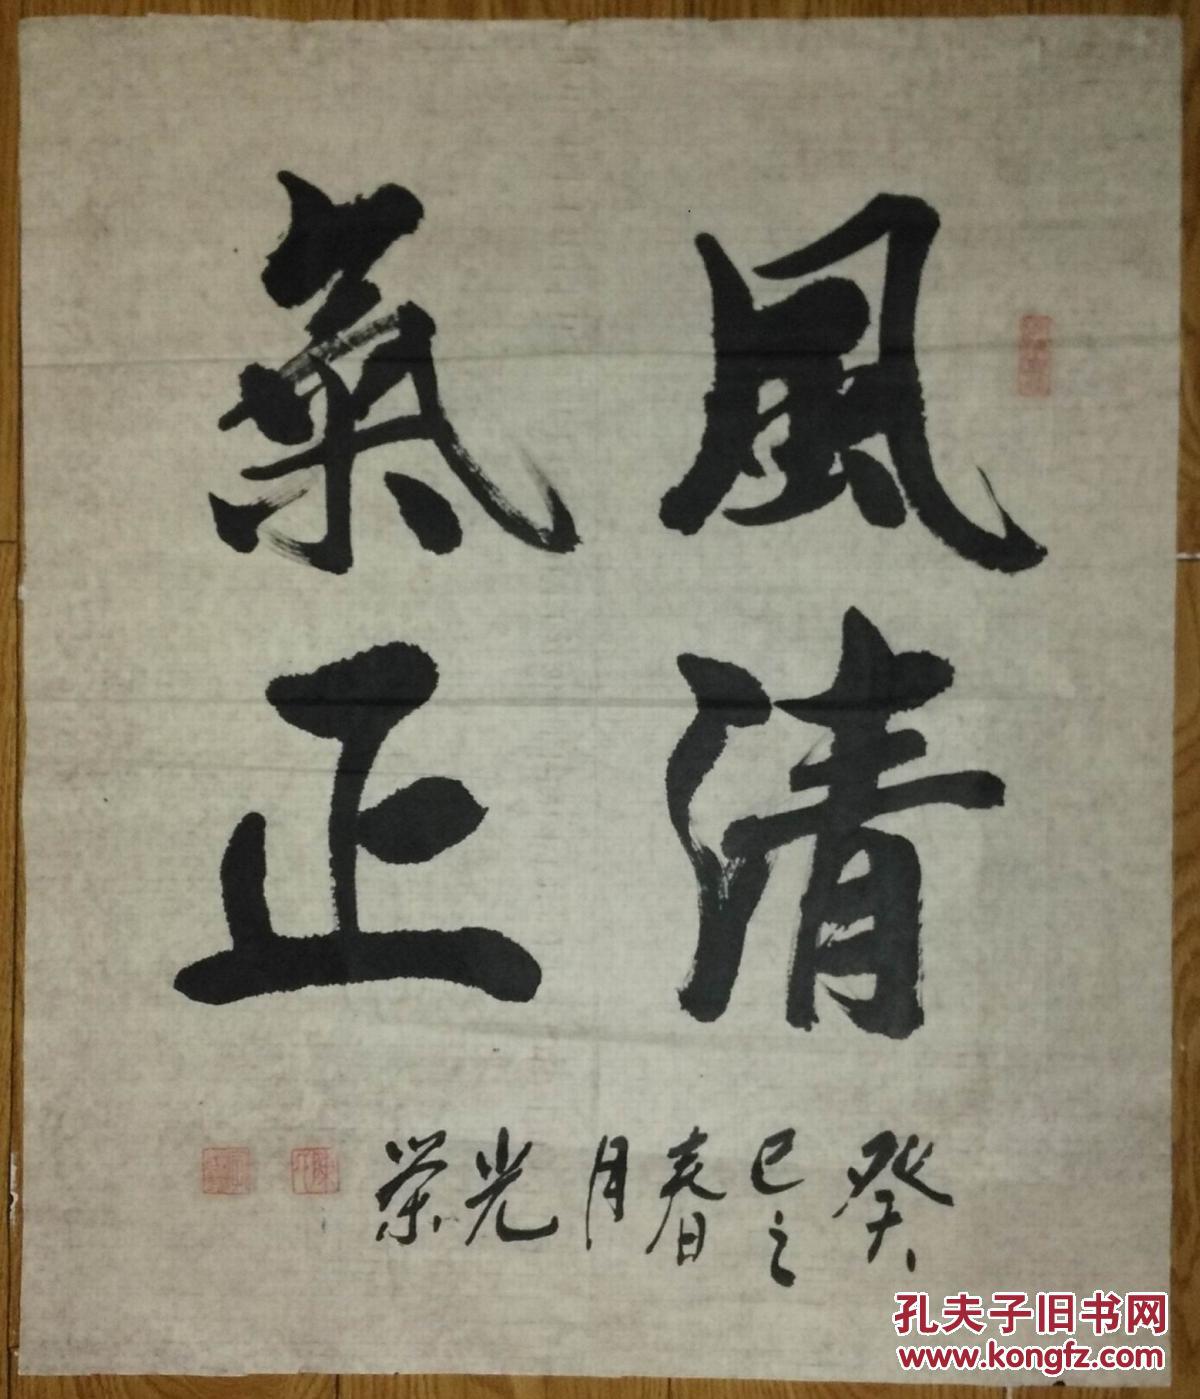 風清
氣正
癸巳之春月光荣
孔夫子旧书网
www.kongfz.com